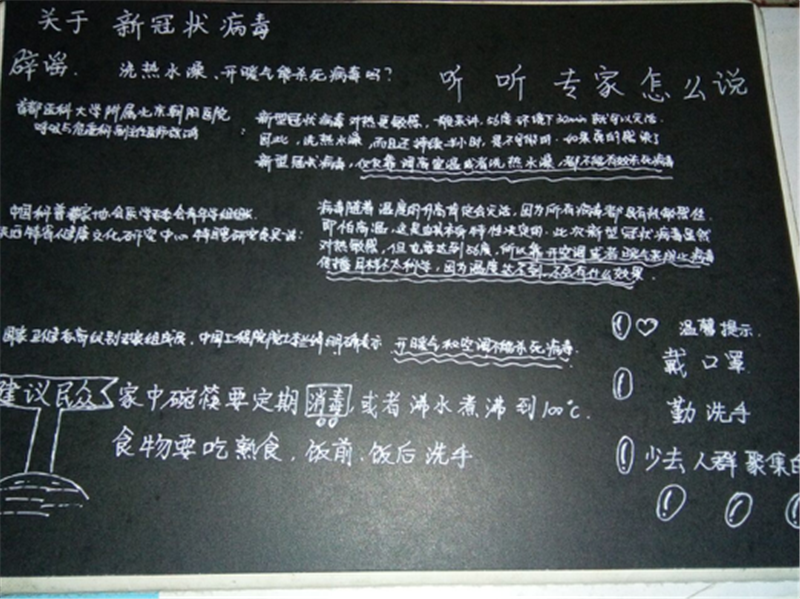 关于 新冠状病毒
辟谣. 洗热水澡、开暖气能杀死病毒吗?
听听专家怎么说
首都医科大学附属北京朝阳医院
呼吸与危重科副主任
新型冠状病毒对热更敏感,一般来讲,56度环境下30min就可以灭活.
因此,洗热水澡,而且还持续半小时,是不可能的.如果真的感染了
新型冠状病毒,仅仅靠调高室温或者洗热水澡,都不能有效杀死病毒
中国科普作家协会医学
健康文化研究中心特聘研究员说:
病毒随着温度的升高肯定会灭活,因为所有病毒都具有热敏感性
即怕高温,这是由其本身特性决定的.此次新型冠状病毒虽然
对热敏感,但也要达到56度,所以靠开空调或者暖气来阻止病毒
传播目标不太科学,因为温度达不到,不会有什么效果.
国家卫健委高级别专家组成员,中国工程院院士李兰娟 表示 开暖气和空调不能杀死病毒.
建议民众 家中碗筷要定期 消毒,或者沸水煮沸到100℃.
食物要吃熟食,饭前.饭后洗手
温馨提示.
戴口罩
勤洗手
少去人群聚集